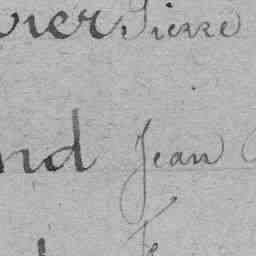 vier Pierre
nd Jean